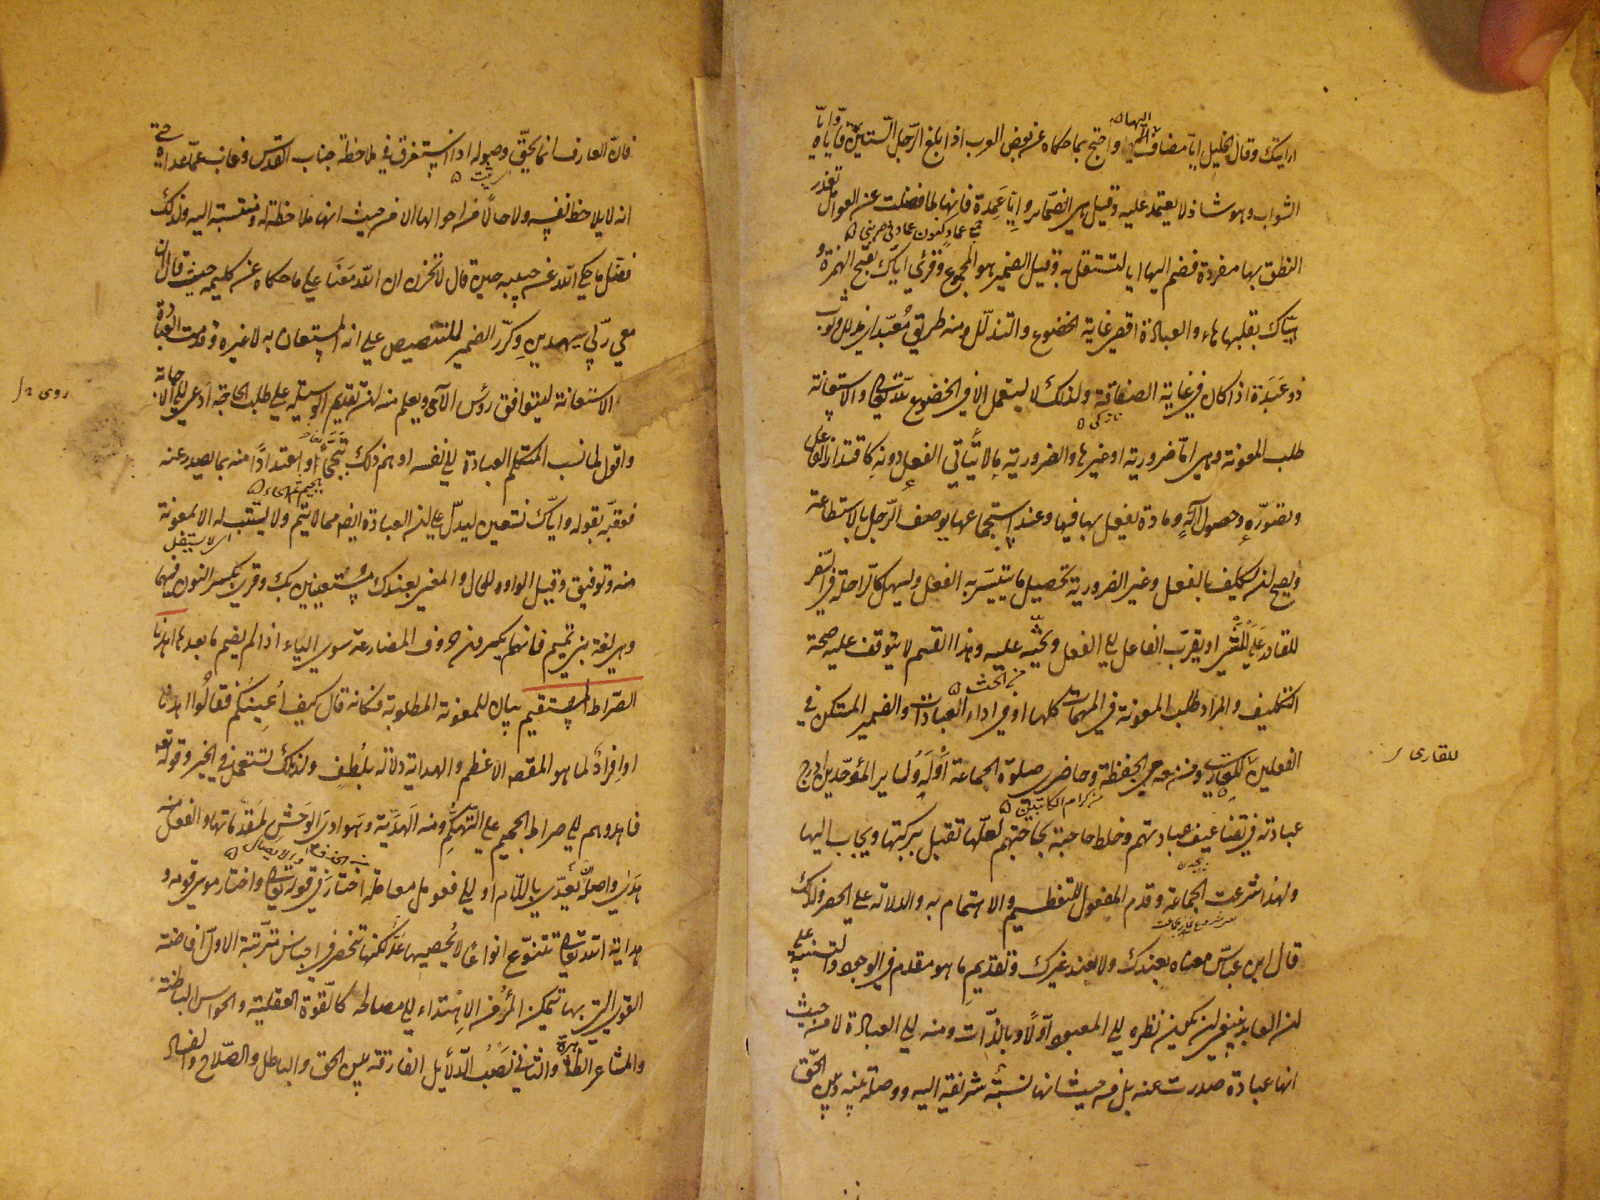 ارايتك وقال الخليل ايا مضاف اليها واحتج بما حكاه عن بعض العرب اذا بلغ الرجل الستين فاياه وايا
الشواب وهو شاذ لا يعتمد عليه وقيل هي الضمائر وايا عمدة فانها لما فصلت عن العوامل تعذر
النطق بها مفردة فضم اليها ايا لتستقل به وقيل الضمير هو المجموع وقرئ اياك بفتح الهمزة و
هياك بقلبها هاء والعبادة اقصى غاية الخضوع والتذلل ومنه طريق معبد اي مذلل وثوب
ذو عبدة اذا كان في غاية الصفاقة ولذلك لا يستعمل الا في الخضوع لله تعالى والاستعانة
طلب المعونة وهي اما ضرورية او غيرها والضرورية ما لا يتأتى الفعل دونه كاقتدار الفاعل
وتصوره وحصول آلة ومادة يفعل بها فيها وعند استجماعها يوصف الرجل بالاستطاعة
ويصح ان يكلف بالفعل وغير الضرورية تحصيل ما يتيسر به الفعل ويسهل كالراحلة في السفر
للقادر على المشي او يقرب الفاعل الى الفعل ويحثه عليه وهذا القسم لا يتوقف عليه صحة
التكليف والمراد طلب المعونة في المهمات كلها او في اداء العبادات والضمير المستكن في
الفعلين للقارئ ومن معه من الحفظة وحاضري صلوة الجماعة او له ولسائر الموحدين ادرج
عبادته في تضاعيف عبادتهم وخلط حاجته بحاجتهم لعلها تقبل ببركتها ويجاب اليها
ولهذا شرعت الجماعة وقدم المفعول للتعظيم والاهتمام به والدلالة على الحصر ولذلك
قال ابن عباس معناه نعبدك ولا نعبد غيرك وتقديم ما هو مقدم في الوجود والتنبيه على
ان العابد ينبغي ان يكون نظره الى المعبود اولا وبالذات ومنه الى العبادة لا من حيث
انها عبادة صدرت عنه بل من حيث انها نسبة شريفة اليه ووصلة بينه وبين الحق
للقارى
فان العارف انما يحق وصوله اذا استغرق في ملاحظة جناب القدس وغاب عما عداه حتى
انه لا يلاحظ نفسه ولا حالا من احوالها الا من حيث انها ملاحظة له ومنتسبة اليه ولذلك
فضل ما حكى الله عن حبيبه حين قال لا تحزن ان الله معنا على ما حكاه عن كليمه حيث قال ان
معي ربي سيهدين وكرر الضمير للتنصيص على انه المستعان به لا غيره وقدمت العبادة
الاستعانة ليتوافق رؤس الآي ويعلم منه ان تقديم الوسيلة على طلب الحاجة ادعى الى الاجابة
واقول لما نسب المتكلم العبادة الى نفسه اوهم ذلك تبجحا او اعتدادا منه بما يصدر عنه
فعقبه بقوله واياك نستعين ليدل على ان العبادة ايضا مما لا يتم ولا يستتب له الا بمعونة
منه وتوفيق وقيل الواو للحال والمعنى نعبدك مستعينين بك وقرئ بكسر النون فيهما
وهي لغة بني تميم فانهم يكسرون حروف المضارعة سوى الياء اذا لم ينضم ما بعدها اهدنا
الصراط المستقيم بيان للمعونة المطلوبة فكانه قال كيف اعينكم فقالوا اهدنا
او افراد لما هو المقصد الاعظم والهداية دلالة بلطف ولذلك تستعمل في الخير وقوله تعالى
فاهدوهم الى صراط الجحيم على التهكم ومنه الهدية وهوادى الوحش لمقدماتها والفعل منه
هدى واصله ان يعدى باللام او الى فعومل معاملة اختار في قوله تعالى واختار موسى قومه و
هداية الله تعالى تتنوع انواعا لا يحصيها عد لكنها تنحصر في اجناس مترتبة الاول افاضة
القوى التي بها يتمكن المرء من الاهتداء الى مصالحه كالقوة العقلية والحواس الباطنة
والمشاعر الظاهرة والثاني نصب الدلائل الفارقة بين الحق والباطل والصلاح والفساد